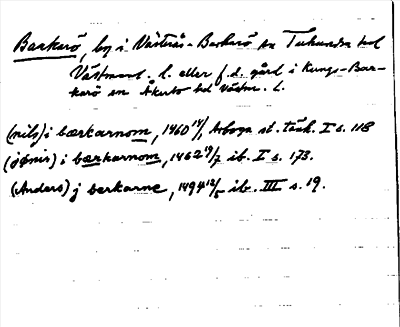 Barkarö, by i Västerås-Barkarö sn Tuhundra hd
Västmanl. l. eller f.d. gård i Kungs-Bar-
karö sn Åkerbo hd Västm. l.
(nils) i bærkarnom, 1460 14/1 Arboga st. tänk. I s. 118
(jønis) i bærkarnom, 1462 19/7 ib. I s. 173.
(Anders) j berkarne, 1494 12/5 ib. III s. 19.